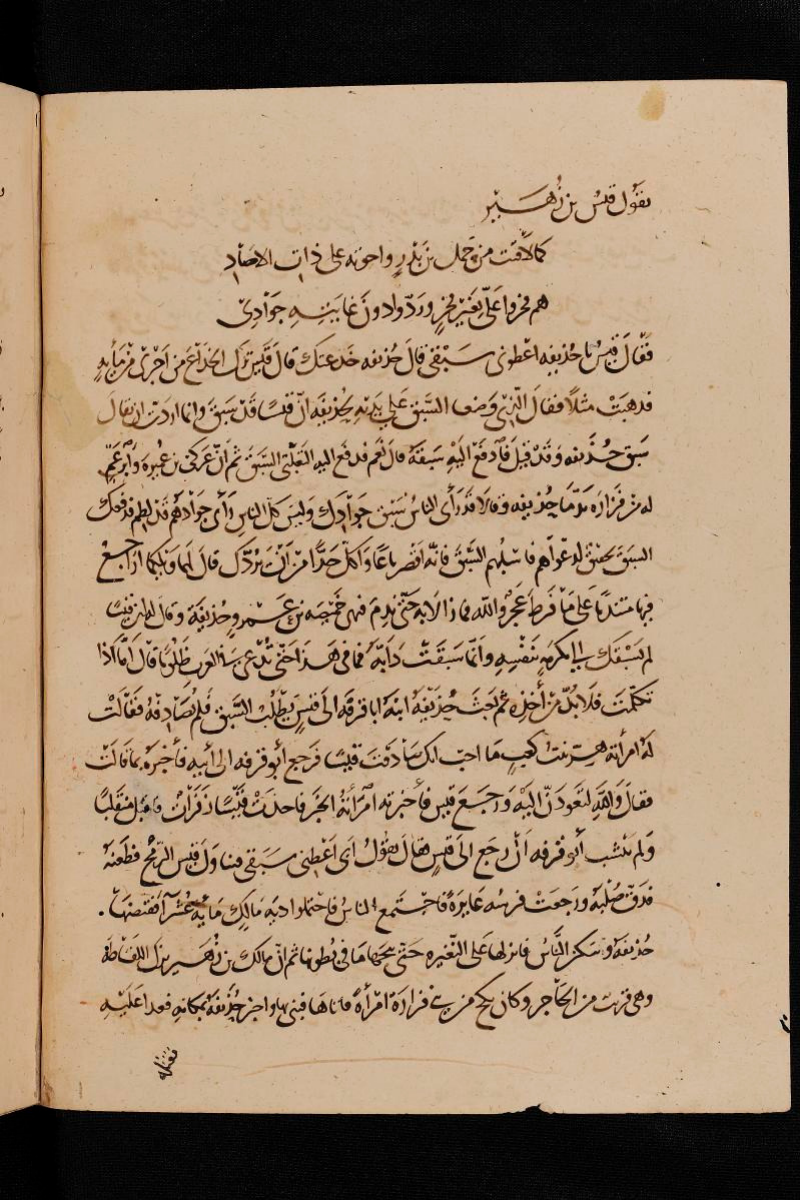 يقول قيس بن زهير
كما لاقيت من حمل بن بدر واخوته على ذات الاصاد
هم فخروا علي بغير فخر وردوا دون غايته جوادي
فقال قيس يا حذيفه اعطوني سبقي قال حذيفه خدعتك قال قيس ترك الخداع من اجرى من مايه
فذهبت مثلا فقال الذي وضعا السبق على يديه لحذيفه ان قيسا قد سبق وانما اردت ان يقال
سبق حذيفه وقد قيل فادفع اليه سبقه قال نعم فدفع اليه الثعلبي السبق ثم ان عركي بن عميره وابن عم
له من فزاره ندما حذيفه وقالا قد راى الناس سبق جوادك وليس كل الناس راى جوادهم قد لطم فدفعك
السبق تحقيق لدعواهم فاسلبهم السبق فانه اقصر باعا واكل حدا من ان يردك قال لهما ويلكما اراجع
فيها متندما على ما فرط عجز والله فما زالا به حتى ندم فنهى حميصه بن عمرو حذيفة وقال له ان قيسا
لم يسبقك الى مكرمه بنفسه وانما سبقت دابته دابه فما في هذا حتى تدعى في العرب ظلوما قال اما اذا
تكلمت فلا بد من اخذه ثم بعث حذيفه ابنه ابا قرفه الى قيس يطلب السبق فلم يصادفه فقالت
له امراته هر بنت كعب ما احب انك صادفت قيسا فرجع ابو قرفه الى ابيه فاخبره بما قالت
فقال والله لتعودن اليه ورجع قيس فاخبرته امراته الخبر فاخذت قيسا زفرات فاقبل متقلبا
ولم ينشب ابو قرفه ان رجع الى قيس فقال يقول ابي اعطني سبقي فتناول قيس الرمح فطعنه
فدق صلبه ورجعت فرسه عايرة فاجتمع الناس فاحتملوا ديه مالك مايه عشرا فقبضها
حذيفه وسكن الناس فانزلها على النفيره حتى نتجها ما في بطونها ثم ان مالك بن زهير نزل اللقاطه
وهي قريب من الحاجر وكان نكح من بني فزارة امراة فاتاها فبنى بها واخبر حذيفه بمكانه فعدا عليه